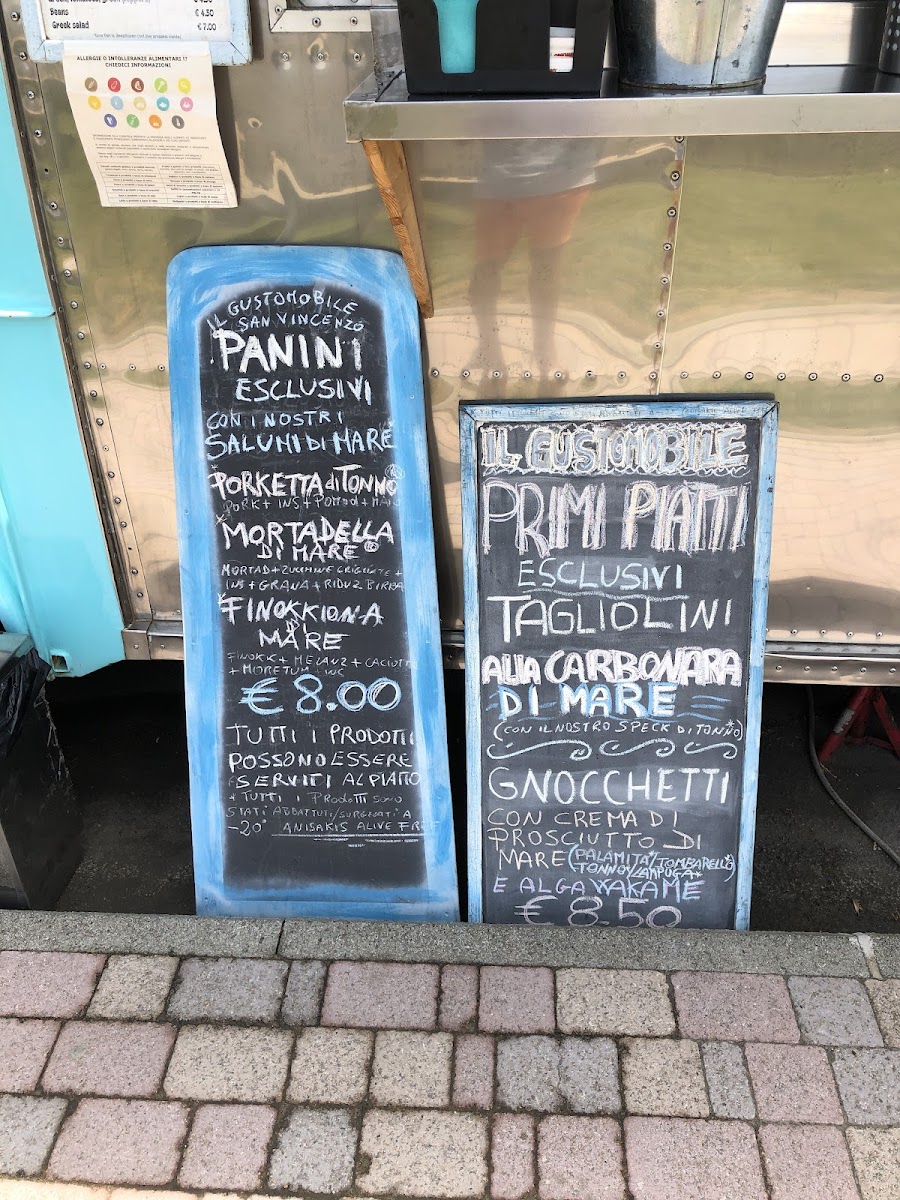 Beans € 4.50
Greek salad € 7.00
ALLERGIE O INTOLLERANZE ALIMENTARI !?
CHIEDICI INFORMAZIONI
IL GUSTOMOBILE
SAN VINCENZO
PANINI
ESCLUSIVI
CON I NOSTRI
SALUMI DI MARE
PORKETTA di TONNO®
PORK + INS + POMOD + MAIO
MORTADELLA
DI MARE®
MORTAD + ZUCCHINE GRIGLIATE +
INS + GRANA + RIDUZ BIRRA
FINOKKIONA
MARE
FINOKK + MELANZ + CACIOTT
+ MORETUM + INS
€ 8.00
TUTTI I PRODOTTI
POSSONO ESSERE
SERVITI AL PIATTO
* TUTTI I PRODOTTI SONO
STATI ABBATTUTI/SURGELATI A
-20° ANISAKIS ALIVE FREE
IL GUSTOMOBILE
PRIMI PIATTI
ESCLUSIVI
TAGLIOLINI
ALLA CARBONARA
DI MARE
(CON IL NOSTRO SPECK DI TONNO*)
GNOCCHETTI
CON CREMA DI
PROSCIUTTO DI
MARE (PALAMITA*/TOMBARELLO*
TONNO*/LAMPUGA*
E ALGA WAKAME
€ 8.50